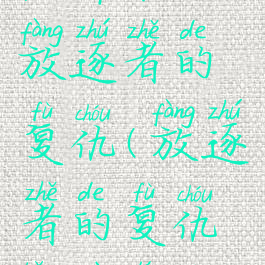 fàng zhú zhě de
放逐者的
fù chóu fàng zhú
复仇(放逐
zhě de fù chóu
者的复仇